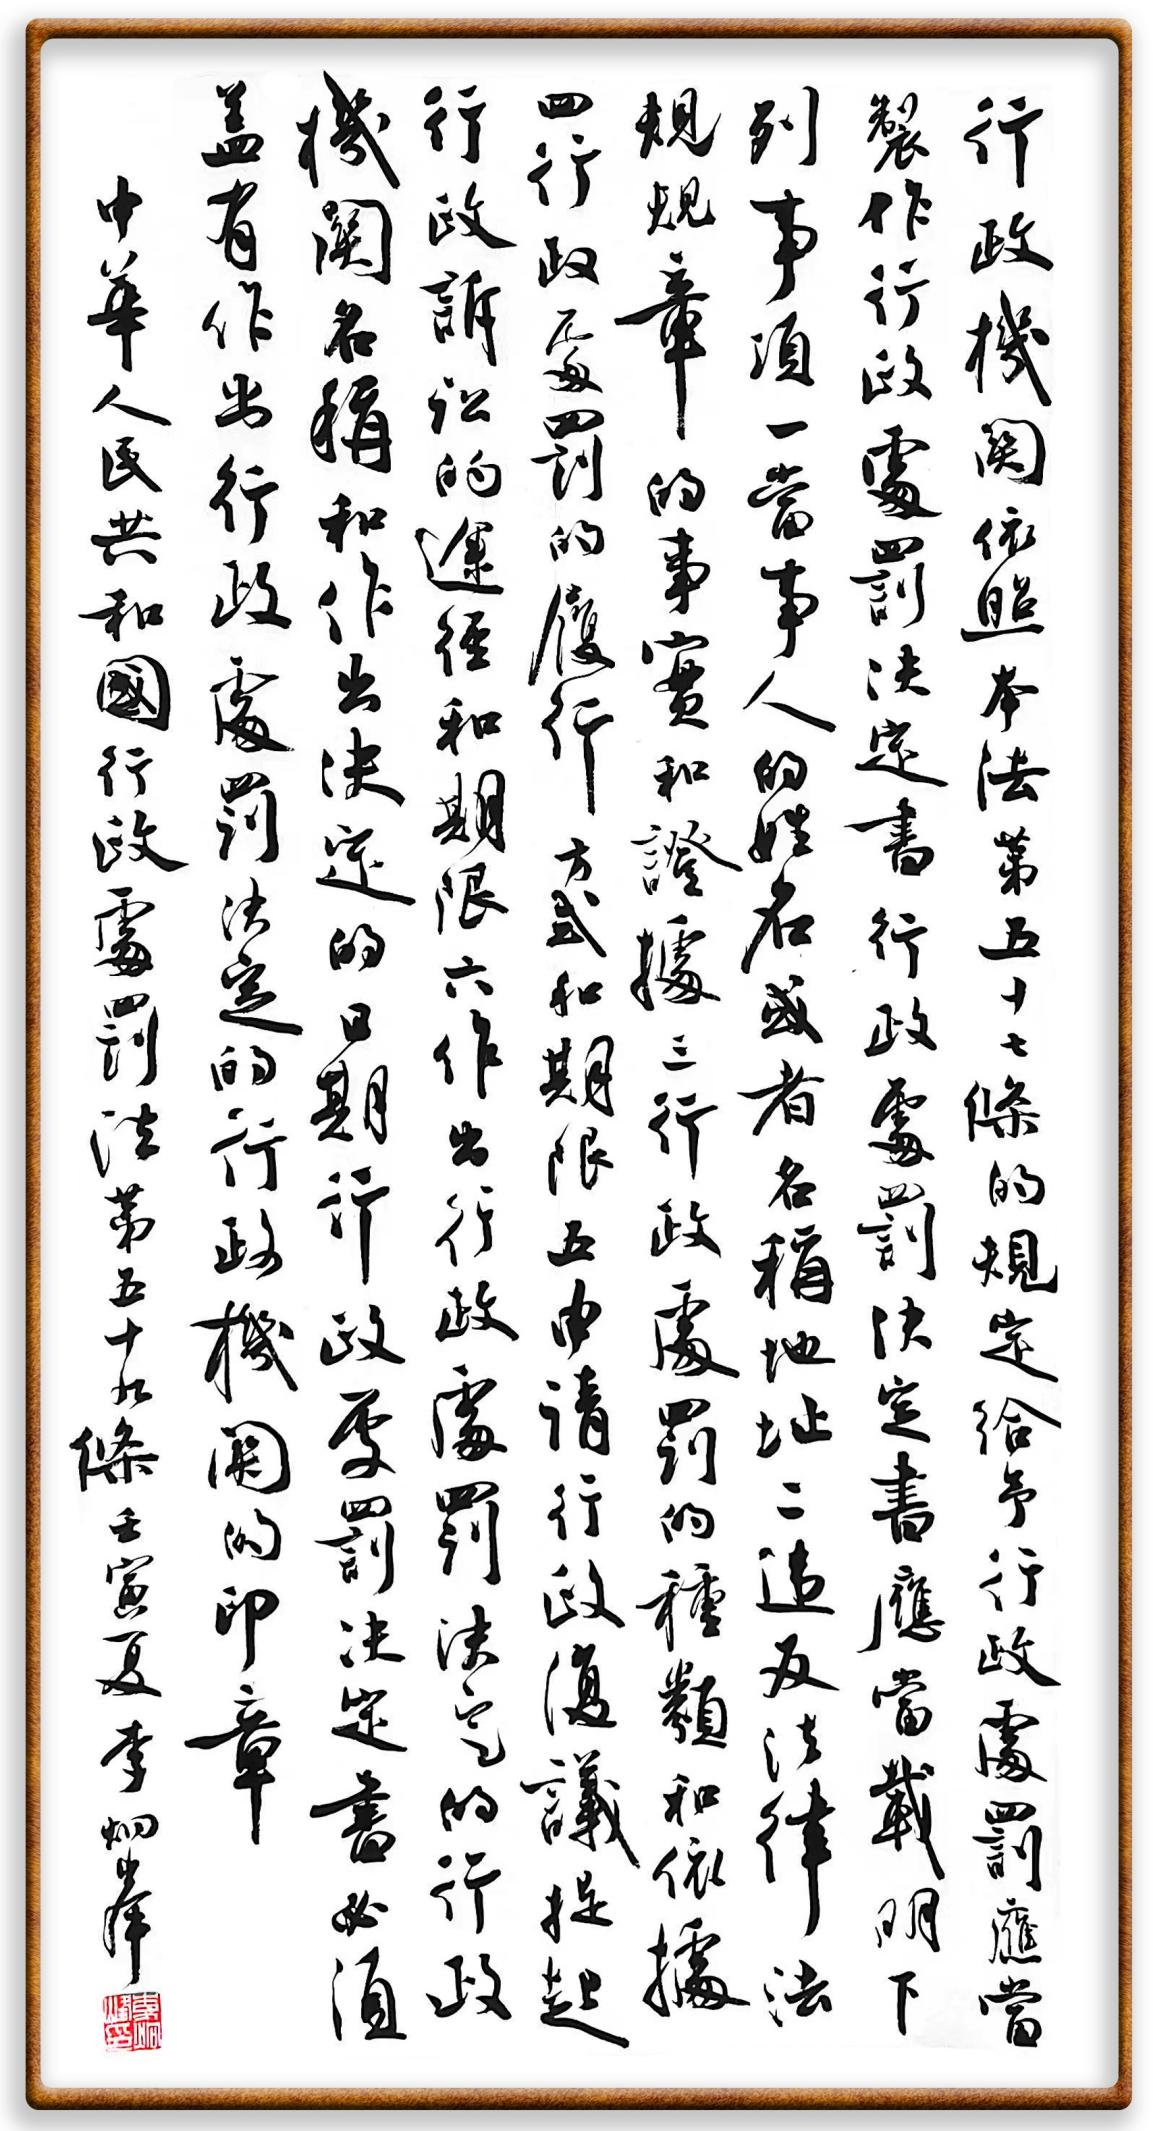 行政機関依照本法第五十七條的規定給予行政處罰應當
製作行政處罰決定書行政處罰決定書應當載明下
列事項一當事人的姓名或者名稱地址二違反法律法
規規章的事實和證據三行政處罰的種類和依據
四行政處罰的履行方式和期限五申请行政復議提起
行政訴讼的途徑和期限六作出行政處罰決定的行政
機関名稱和作出決定的日期行政處罰決定書必須
盖有作出行政處罰決定的行政機関的印章
中華人民共和國行政處罰法第五十九條壬寅夏李炯峯